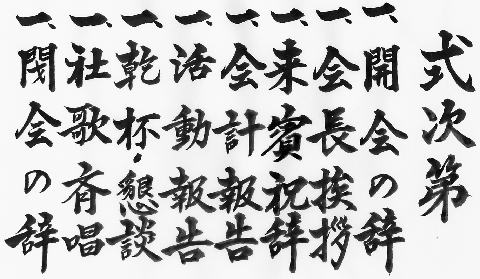 式次第
一、開会の辞
一、会長挨拶
一、来賓祝辞
一、会計報告
一、活動報告
一、乾杯・懇談
一、社歌斉唱
一、閉会の辞